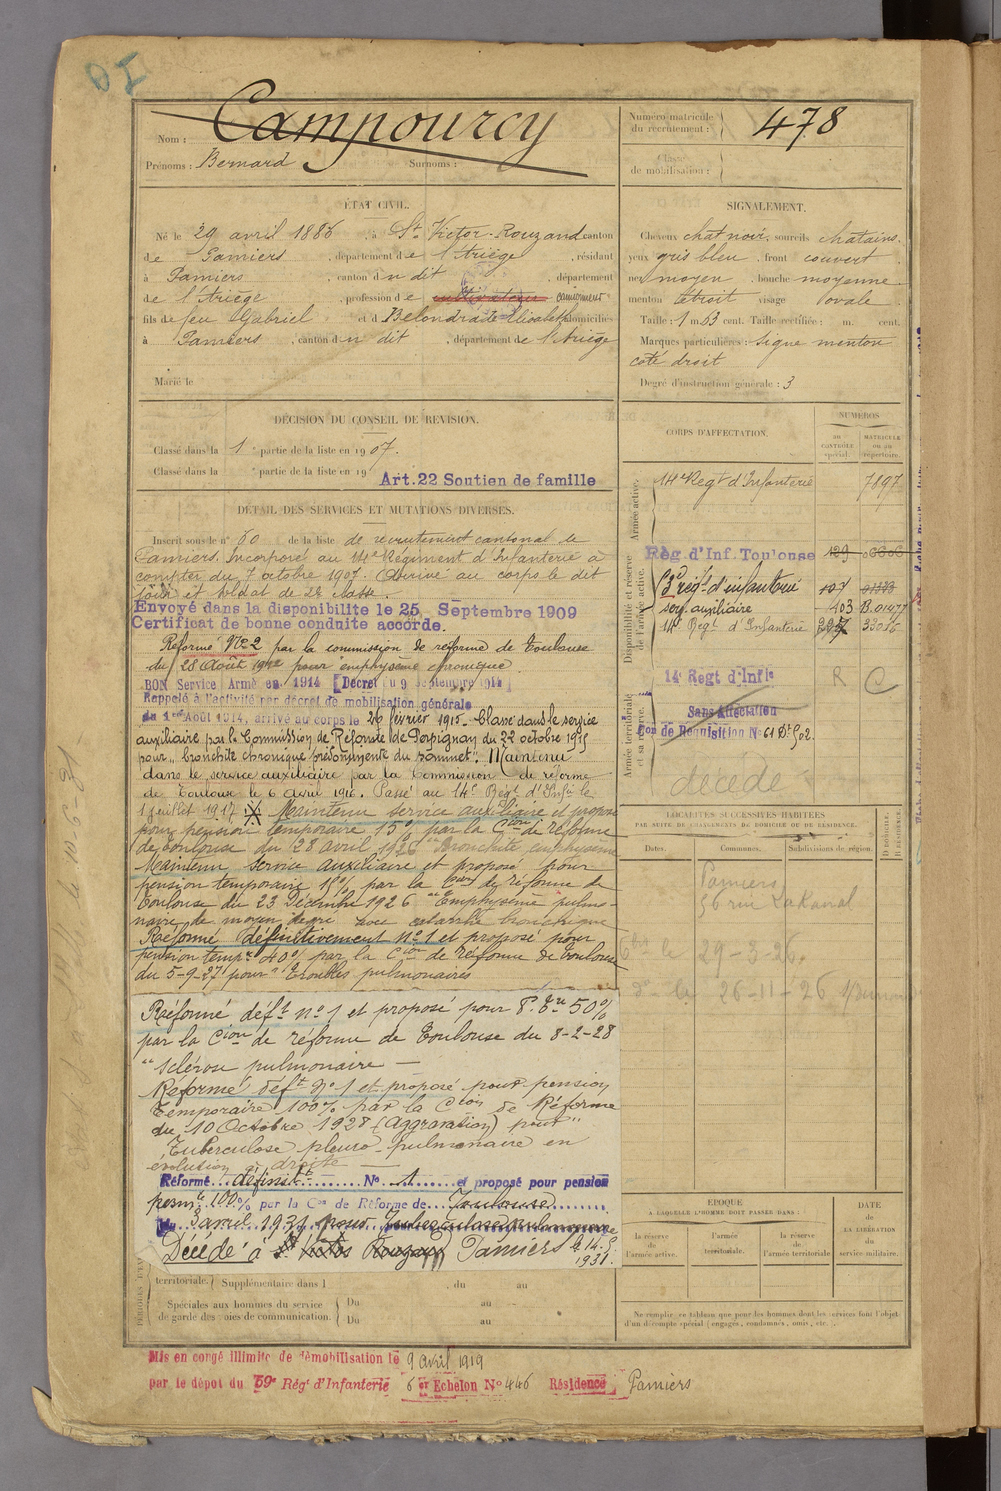 Campourcy
Nom :
Prénoms : Bernard Surnoms :
Numéro matricule du recrutement : 478
Classe de mobilisation :
ÉTAT CIVIL.
Né le 29 avril 1886, à St Victor-Rouzaud canton
de Pamiers, département de l'Ariège, résidant
à Pamiers, canton du dit, département
de l'Ariège, profession de cultivateur
fils de feu Gabriel et d domiciliés
à Pamiers, canton du dit, département de l'Ariège
Marié le
SIGNALEMENT.
Cheveux chat noir, sourcils chatains.
yeux gris bleu, front couvert
nez moyen, bouche moyenne
menton étroit visage ovale
Taille : 1 m. 63 cent. Taille rectifiée : m. cent.
Marques particulières : Signe menton
coté droit
Degré d'instruction générale : 3
DÉCISION DU CONSEIL DE REVISION.
Classé dans la 1 partie de la liste en 1907.
Classé dans la partie de la liste en 19
Art.22 Soutien de famille
DÉTAIL DES SERVICES ET MUTATIONS DIVERSES.
Inscrit sous le n° 60 de la liste de recrutement cantonal de
Pamiers. Incorporé au 14e Régiment d'Infanterie à
compter du 7 octobre 1907. Arrivé au corps le dit
jour et soldat de 2e classe.
Envoyé dans la disponibilité le 25 Septembre 1909
Certificat de bonne conduite accordé.
Réformé N°2 par la commission de réforme de Toulouse
du 28 Août 1912 pour emphysème chronique
BON Service Armé en 1914 Décret du 9 Septembre 1914
Rappelé à l'activité par décret de mobilisation générale
du 1er Août 1914, arrivé au corps le 26 février 1915. Classé dans le service
auxiliaire par la Commission de Réforme de Perpignan du 22 octobre 1915
pour "bronchite chronique prédominante du sommet". Maintenu
dans le service auxiliaire par la Commission de réforme
de Toulouse le 6 Avril 1916. Passé au 14e Régt d'Infie le
1 juillet 1917. Maintenu service auxiliaire et proposé
pour pension temporaire 15% par la Cion de réforme
de Toulouse du 28 avril 1926 "Bronchite emphysème
Maintenu Service auxiliaire et proposé pour
pension temporaire 15% par la Cion de réforme de
Toulouse du 23 Décembre 1926 "Emphysème pulmo-
naire de moyen degré avec catarrhe bronchique
Réformé définitivement N°1 et proposé pour
pension tempre 40% par la Cion de réforme de Toulouse
du 5-9-27 pour "Troubles pulmonaires
Réformé déft n°1 et proposé pour P. Tre 50%
par la Cion de réforme de Toulouse du 8-2-28
"Sclérose pulmonaire —
Réformé déft N°1 et proposé pour pension
Temporaire 100% par la Cion de Réforme
du 10 Octobre 1928 (Aggravation) pour "
Tuberculose pleuro-pulmonaire en
évolution à droite —
Réformé définitt N° 1 et proposé pour pension
perm.te 100% par la Con de Réforme de Toulouse
du 3 avril 1931 pour Tuberculose pulmonaire
Décédé à St Victor Rouzaud Pamiers le 14.5.
1931.
territoriale. Supplémentaire dans l , du au
Spéciales aux hommes du service
de garde des voies de communication. Du au
Du au
CORPS D'AFFECTATION.
NUMÉROS
au CONTRÔLE spécial.
MATRICULE ou au répertoire.
Armée active.
14e Régt d'Infanterie 7197
Disponibilité et réserve de l'armée active.
Rég. d'Inf. Toulouse 129
regt d'infanterie 107
serv. auxiliaire 403
14e Regt d'Infanterie
Armée territoriale et sa réserve.
14e Regt d'Infie R C
Sans Affectation
Con de Réquisition N° 61 Dt 502.
décédé
LOCALITÉS SUCCESSIVES HABITÉES
PAR SUITE DE CHANGEMENTS DE DOMICILE OU DE RÉSIDENCE.
Dates. Communes. Subdivisions de région. D DOMICILE. R RÉSIDENCE.
Pamiers
56 rue Lakanal
le 29-3-26.
do le 26-11-26
EPOQUE
A LAQUELLE L'HOMME DOIT PASSER DANS :
la réserve de l'armée active.
l'armée territoriale.
la réserve de l'armée territoriale
DATE de LA LIBÉRATION du service militaire.
Ne remplir ce tableau que pour les hommes dont les services font l'objet
d'un décompte spécial (engagés, condamnés, omis, etc.).
Mis en congé illimité de démobilisation le 9 avril 1919
par le dépôt du 59e Régt d'Infanterie 6 er Echelon N° 446 Résidence Pamiers